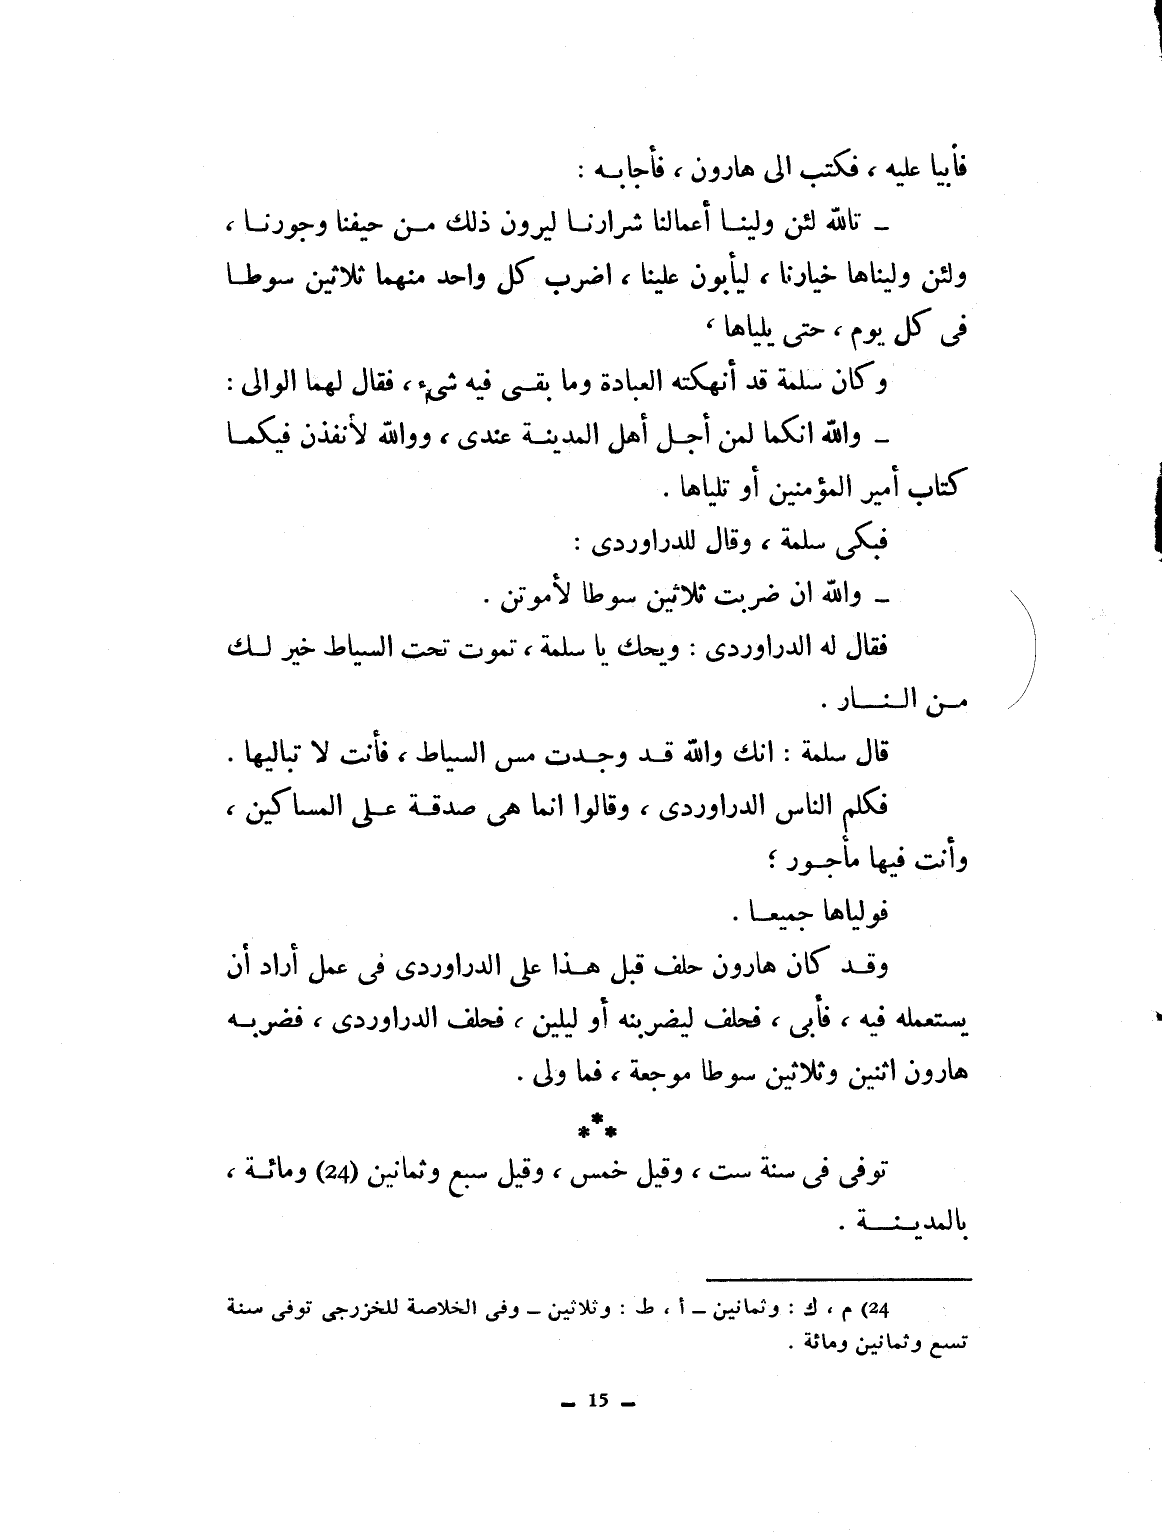 فأبيا عليه ، فكتب الى هارون ، فأجابـه :
ـ تالله لئن ولينـا أعمالنا شرارنـا ليرون ذلك مـن حيفنا وجورنـا ،
ولئن وليناها خيارنا ، ليأبون علينا ، اضرب كل واحد منهما ثلاثين سوطـا
فى كل يوم ، حتى يلياها ،
وكان سلمة قد أنهكته العبادة وما بقـى فيه شيء ، فقال لهما الوالى :
ـ والله انكما لمن أجـل أهل المدينـة عندى ، ووالله لأنفذن فيكمـا
كتاب أمير المؤمنين أو تلياها .
فبكى سلمة ، وقال للدراوردى :
ـ والله ان ضربت ثلاثين سوطا لأموتن .
فقال له الدراوردى : ويحك يا سلمة ، تموت تحت السياط خير لـك
مـن النـــار .
قال سلمة : انك والله قـد وجـدت مس السياط ، فأنت لا تباليها .
فكلم الناس الدراوردى ، وقالوا انما هى صدقـة علـى المساكين ،
وأنت فيها مأجـور ؟
فولياها جميعـا .
وقـد كان هارون حلف قبل هـذا على الدراوردى فى عمل أراد أن
يستعمله فيه ، فأبى ، فحلف ليضربنه أو ليلين ، فحلف الدراوردى ، فضربـه
هارون اثنين وثلاثين سوطا موجعة ، فما ولى .
***
توفى فى سنة ست ، وقيل خمس ، وقيل سبع وثمانين (24) ومائـة ،
بالمدينـــة .
24) م ، ك : وثمانين ـ أ ، ط : وثلاثين ـ وفى الخلاصة للخزرجى توفى سنة
تسع وثمانين ومائة .
ـ 15 ـ